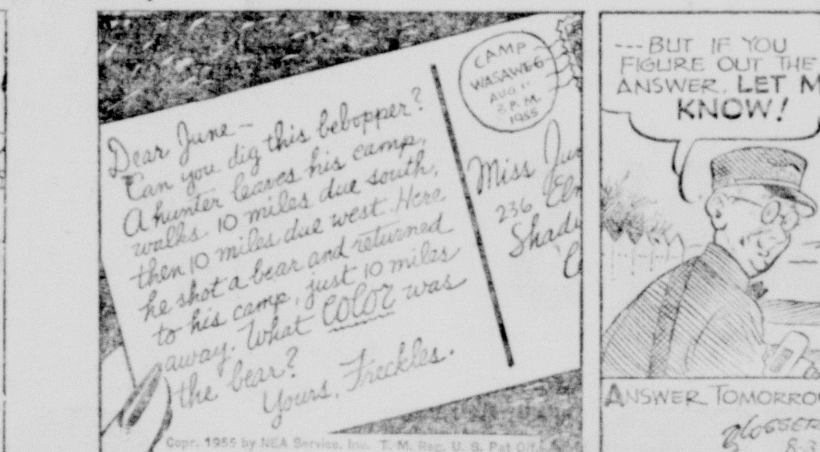 Dear June—
Can you dig this bebopper?
A hunter leaves his camp,
walks 10 miles due south,
then 10 miles due west. Here
he shot a bear and returned
to his camp, just 10 miles
away. What COLOR was
the bear?
Yours, Freckles.
CAMP
WASAWEG
AUG
P.M.
1955
Miss Jun
236 Elm
Shad
Copr. 1955 by NEA Service, Inc. T. M. Reg. U. S. Pat. Off.
--- BUT IF YOU
FIGURE OUT THE
ANSWER, LET M
KNOW!
ANSWER TOMORRO
BLOSSER
8-3